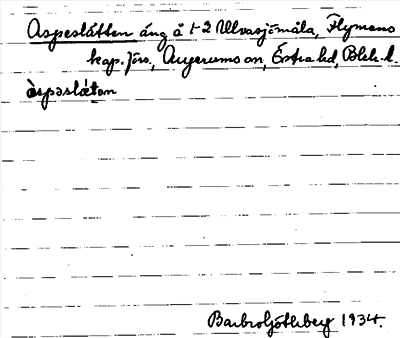 Aspeslätten äng å 1-2 Ulvasjömåla, Flymens
kap. förs., Augerums sn, Östra hd, Blek. l.
àspəslǽtən
Barbro Ljöthberg 1934.